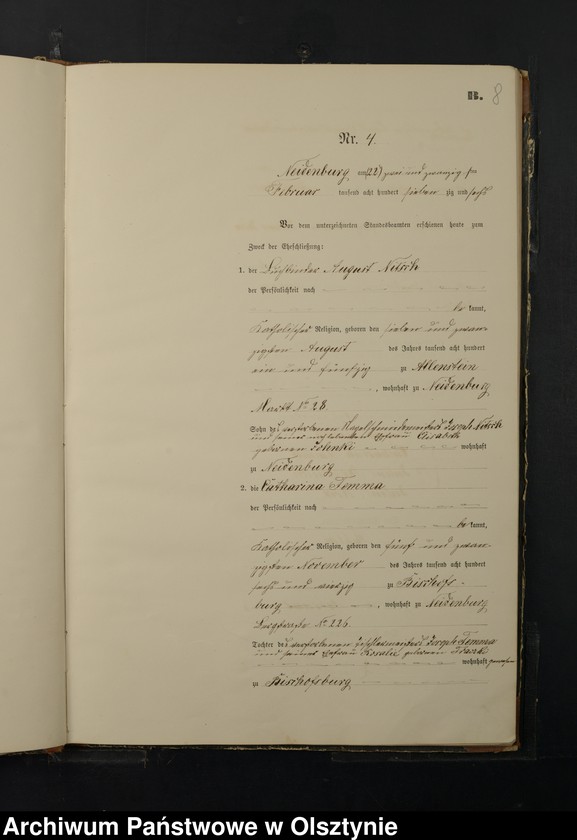 B. 8
Nr. 4.
Neidenburg am (22) zwei und zwanzigsten
Februar tausend acht hundert sieben zig und sechs
Vor dem unterzeichneten Standesbeamten erschienen heute zum
Zweck der Eheschließung:
1. der Buchbinder August
der Persönlichkeit nach
be kannt,
katholischer Religion, geboren den sieben und zwan-
zigsten August des Jahres tausend acht hundert
ein und fünfzig zu Allenstein
, wohnhaft zu Neidenburg
Markt No 28
Sohn des verstorbenen Joseph
und seiner Ehefrau Elisabeth
geborenen wohnhaft
zu Neidenburg
2. die Catharina
der Persönlichkeit nach
be kannt,
katholischer Religion, geboren den fünf und zwan-
zigsten November des Jahres tausend acht hundert
sechs und vierzig zu Bischofs-
burg , wohnhaft zu Neidenburg
No 226
Tochter des verstorbenen Joseph
und seiner Ehefrau Rosalie geborenen
wohnhaft gewesen
zu Bischofsburg
Archiwum Państwowe w Olsztynie